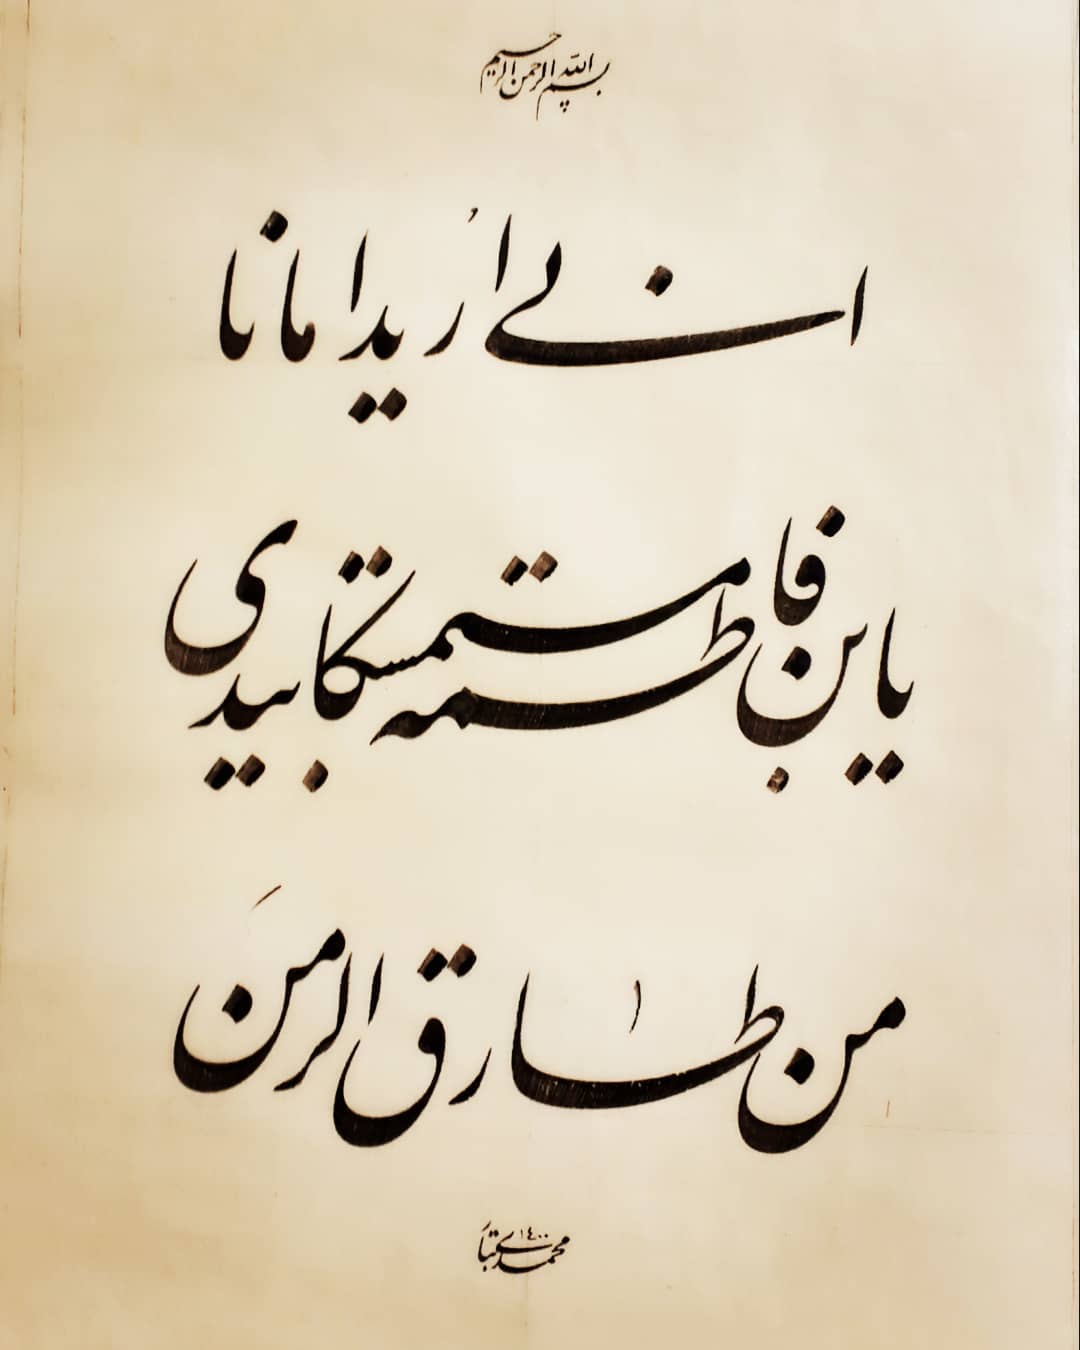 بسم الله الرحمن الرحیم
انی اُرید امانا
یابن فاطمه مستمسکا بیدی
من طارق الزمنَ
محمدی تبار ۱۴۰۰